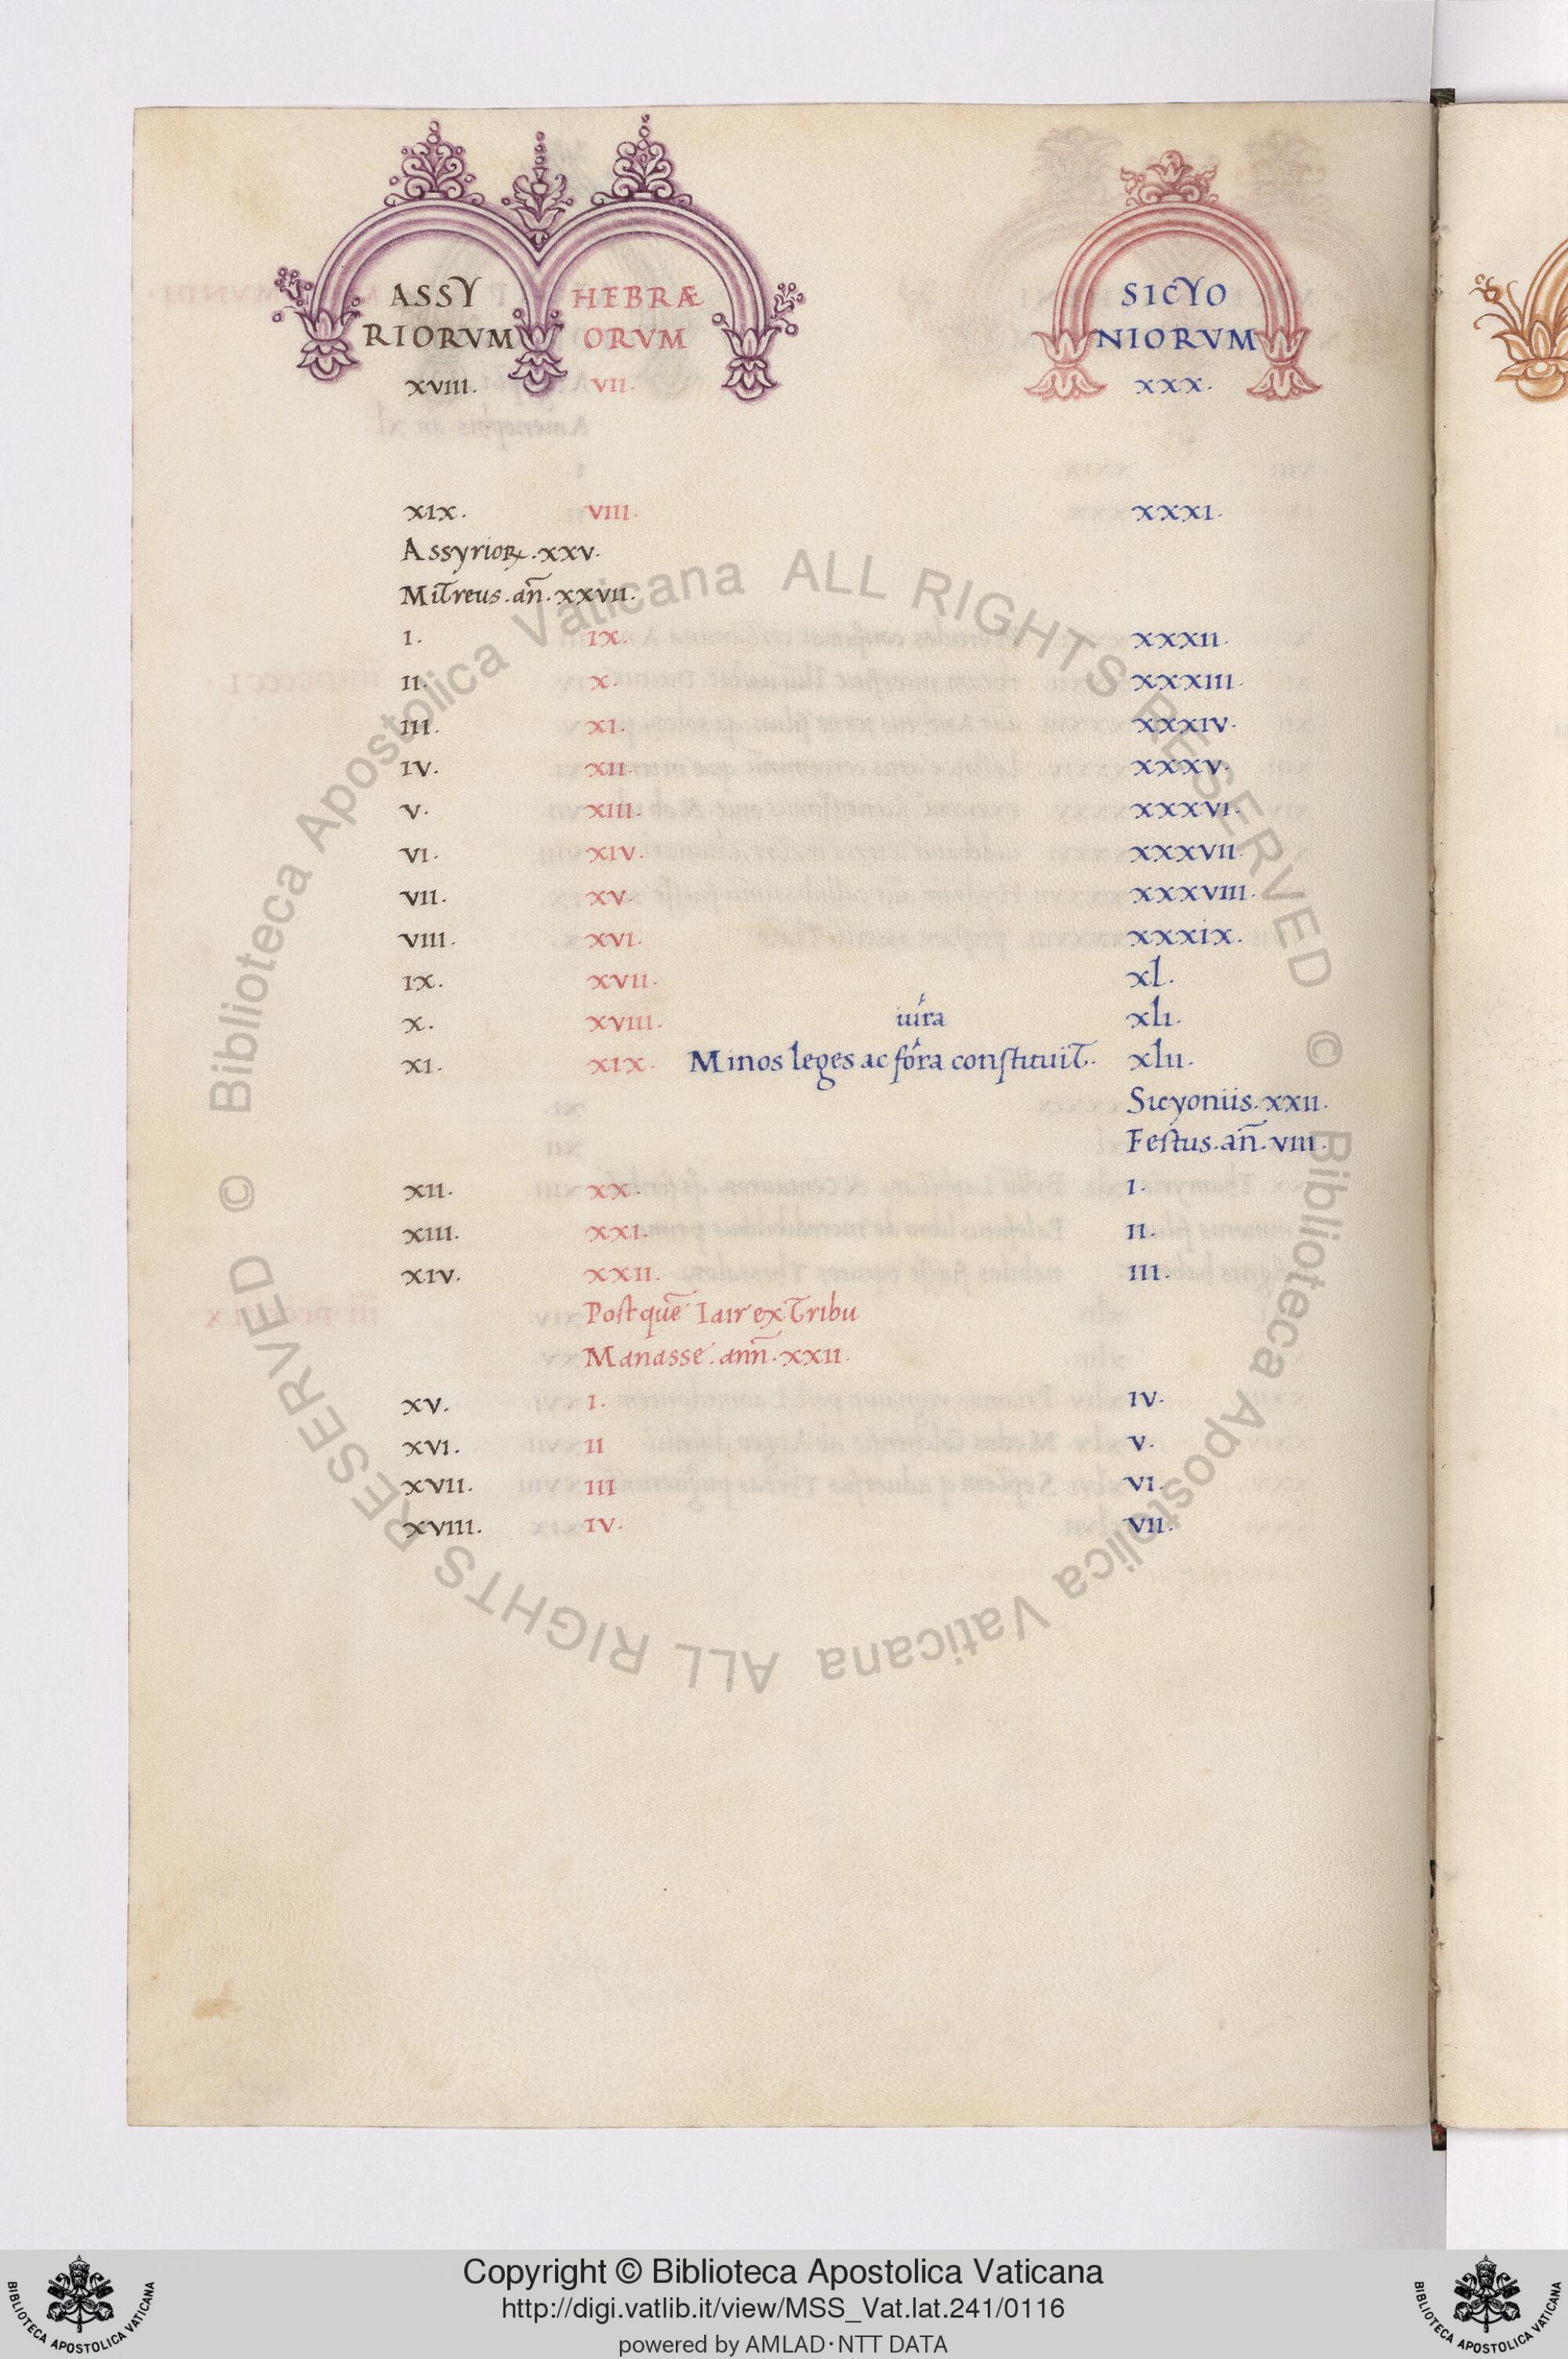 ASSY HEBRÆ SICYO
RIORVM ORVM NIORVM
XVIII. VII. XXX.
XIX. VIII. XXXI.
Assyrioꝝ. XXV.
Mitreus. añ. XXVII.
I. IX. XXXII.
II. X. XXXIII.
III. XI. XXXIV.
IV. XII. XXXV.
V. XIII. XXXVI.
VI. XIV. XXXVII.
VII. XV. XXXVIII.
VIII. XVI. XXXIX.
IX. XVII. xl.
iura
X. XVIII. xli.
XI. XIX. Minos leges ac fora constituit. xlii.
Sicyoniis. XXII.
Festus. añ. VIII.
XII. XX. I.
XIII. XXI. II.
XIV. XXII. III.
Post quē Iair ex Tribu
Manasse. anñ. XXII.
XV. I. IV.
XVI. II V.
XVII. III VI.
XVIII. IV. VII.
© Biblioteca Apostolica Vaticana ALL RIGHTS RESERVED
© Biblioteca Apostolica Vaticana ALL RIGHTS RESERVED
Copyright © Biblioteca Apostolica Vaticana
http://digi.vatlib.it/view/MSS_Vat.lat.241/0116
powered by AMLAD·NTT DATA
BIBLIOTECA APOSTOLICA VATICANA
BIBLIOTECA APOSTOLICA VATICANA